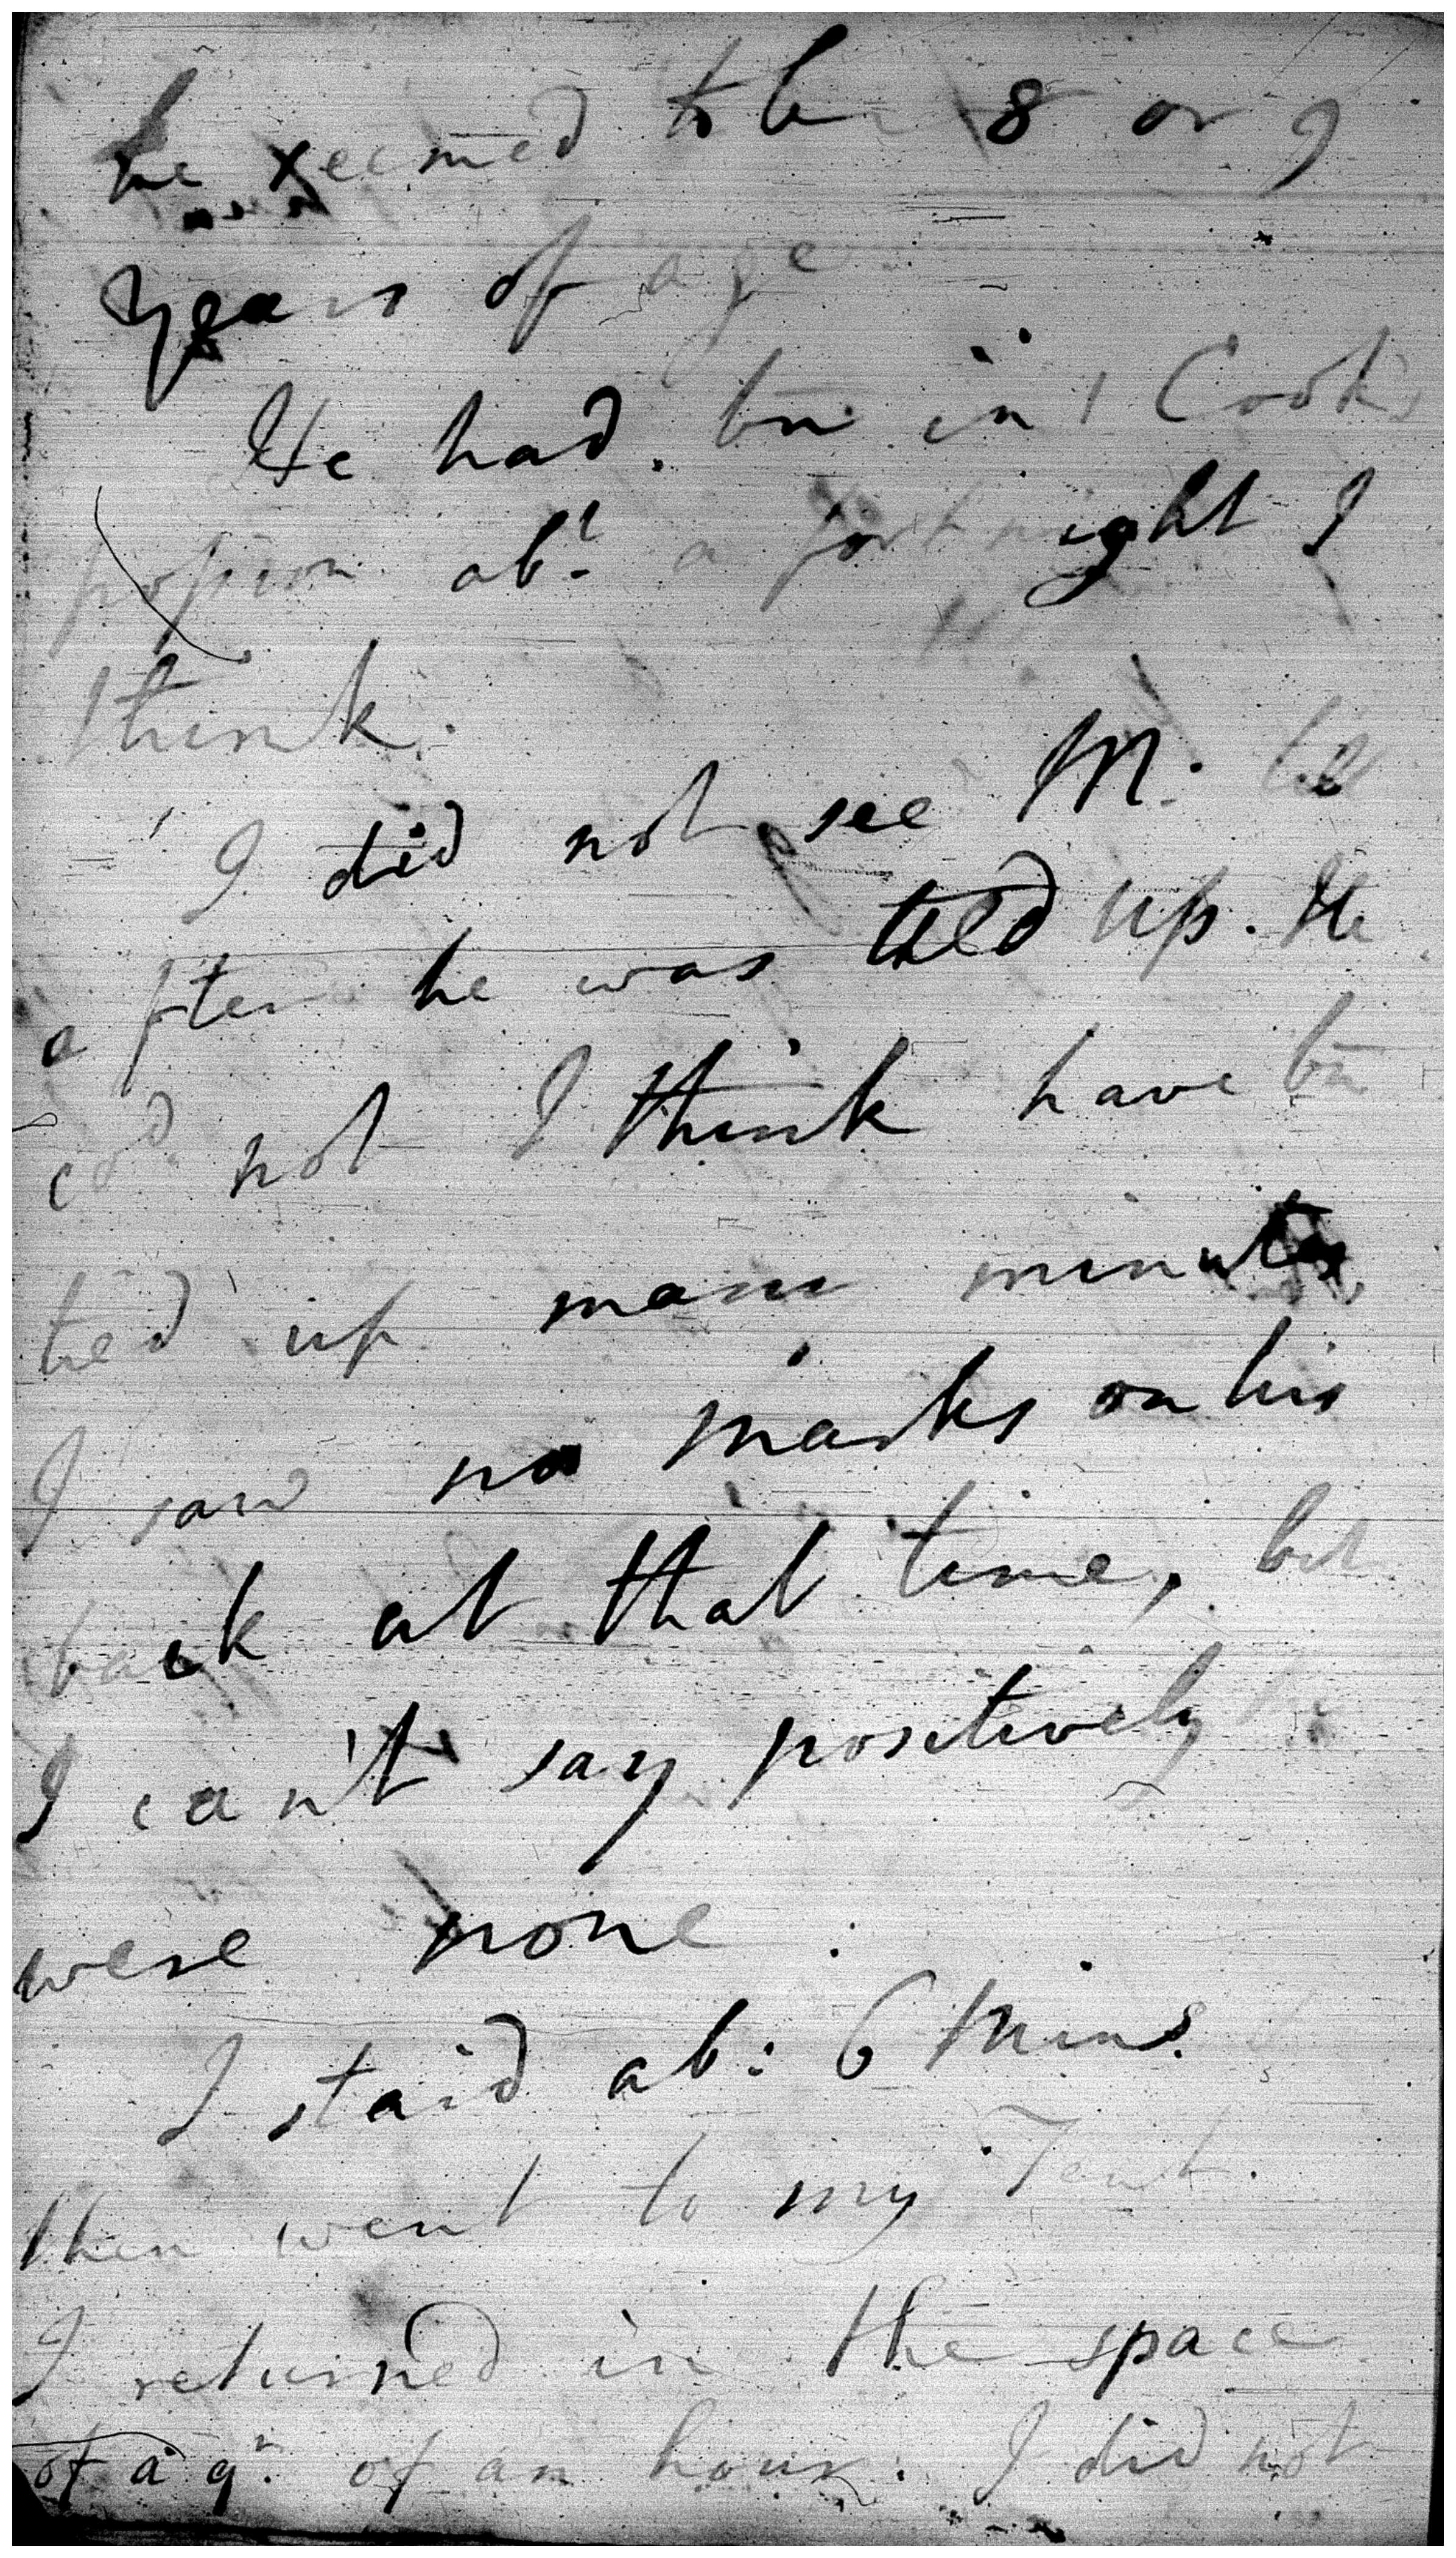 he seemed to be 8 or 9
years of age
He had bn in Cooks
possion abt a fortnight I
think.
I did not see M. till
after he was tied up. He
cod not I think have bn
tied up many minutes
I saw no marks on his
back at that time, but
I can't say positively
were none.
I staid ab: 6 Mins.
then went to my Tent.
I returned in the space
of a qr. of an hour. I did not